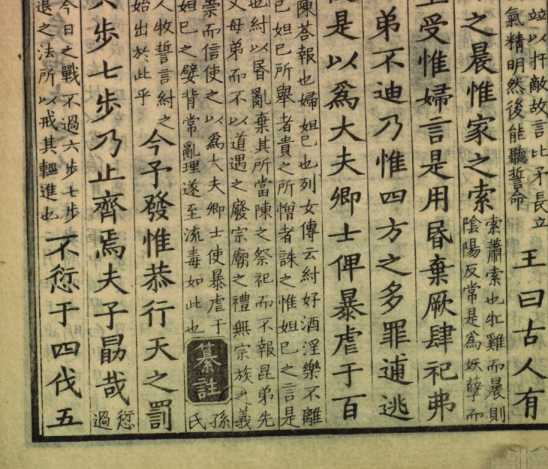 竝以扞敵故言比矛長立
氣精明然後能聽誓命
王曰古人有
之晨惟家之索
索蕭索也牝雞而晨則
陰陽反常是爲妖孽而
受惟婦言是用昬棄厥肆祀弗
弟不迪乃惟四方之多罪逋逃
是以爲大夫卿士俾暴虐于百
陳荅報也婦妲己也列女傳云紂好酒淫樂不離
妲己妲己所舉者貴之所憎者誅之惟妲己之言是
也紂以昬亂棄其所當陳之祭祀而不報昆弟先
父母弟而不以道遇之廢宗廟之禮無宗族之義
崇而信使之以爲大夫卿士使暴虐于
妲己之嬖背常亂理遂至流毒如此也
纂註
孫
氏
人牧誓言紂之
始出於此乎
今予發惟恭行天之罰
步七步乃止齊焉夫子勗哉
愆
過
今日之戰不過六步七步
退之法所以戒其輕進也
不愆于四伐五